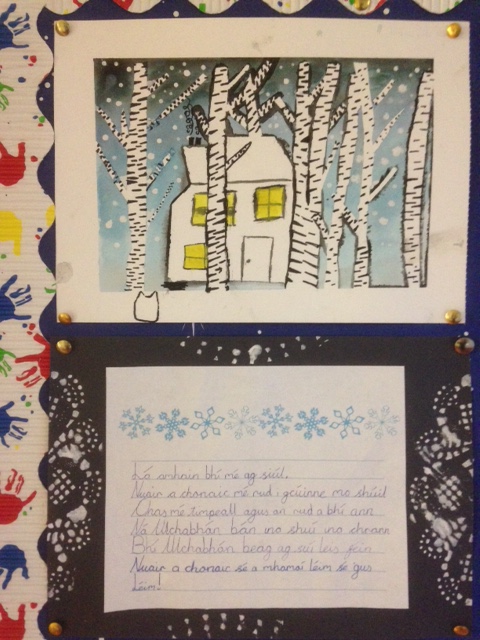 Lá amháin bhí mé ag siúl,
Nuair a chonaic mé rud i gcúinne mo shúil
Chas mé timpeall agus an rud a bhí ann
Ná Ulchabhán bán ina shuí ina chrann
Bhí Ulchabhán beag ag suí leis féin
Nuair a chonaic sé a mhamaí léim sé gus
léim!